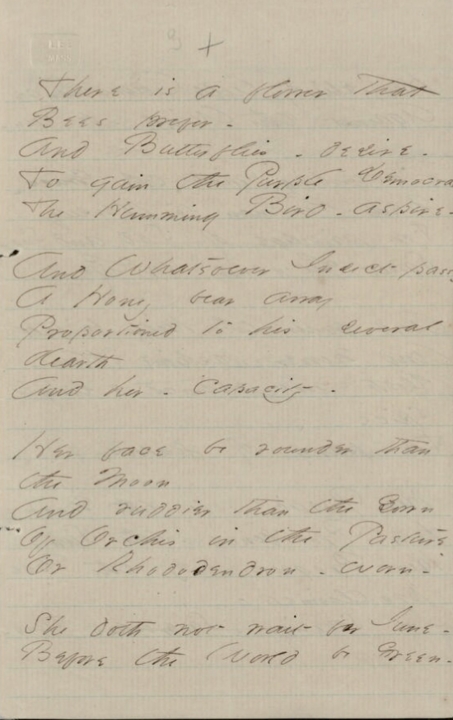 There is a flower that
Bees prefer -
And Butterflies - desire -
To gain the Purple Democra
The Humming Bird - aspire -
And Whatsoever Insect pass
A Honey bear away
Proportioned to his several
dearth
And her - capacity -
Her face be rounder than
the Moon
And ruddier than the Gown
Of Orchis in the Pasture
Or Rhododendron - worn -
She doth not wait for June -
Before the World be Green -